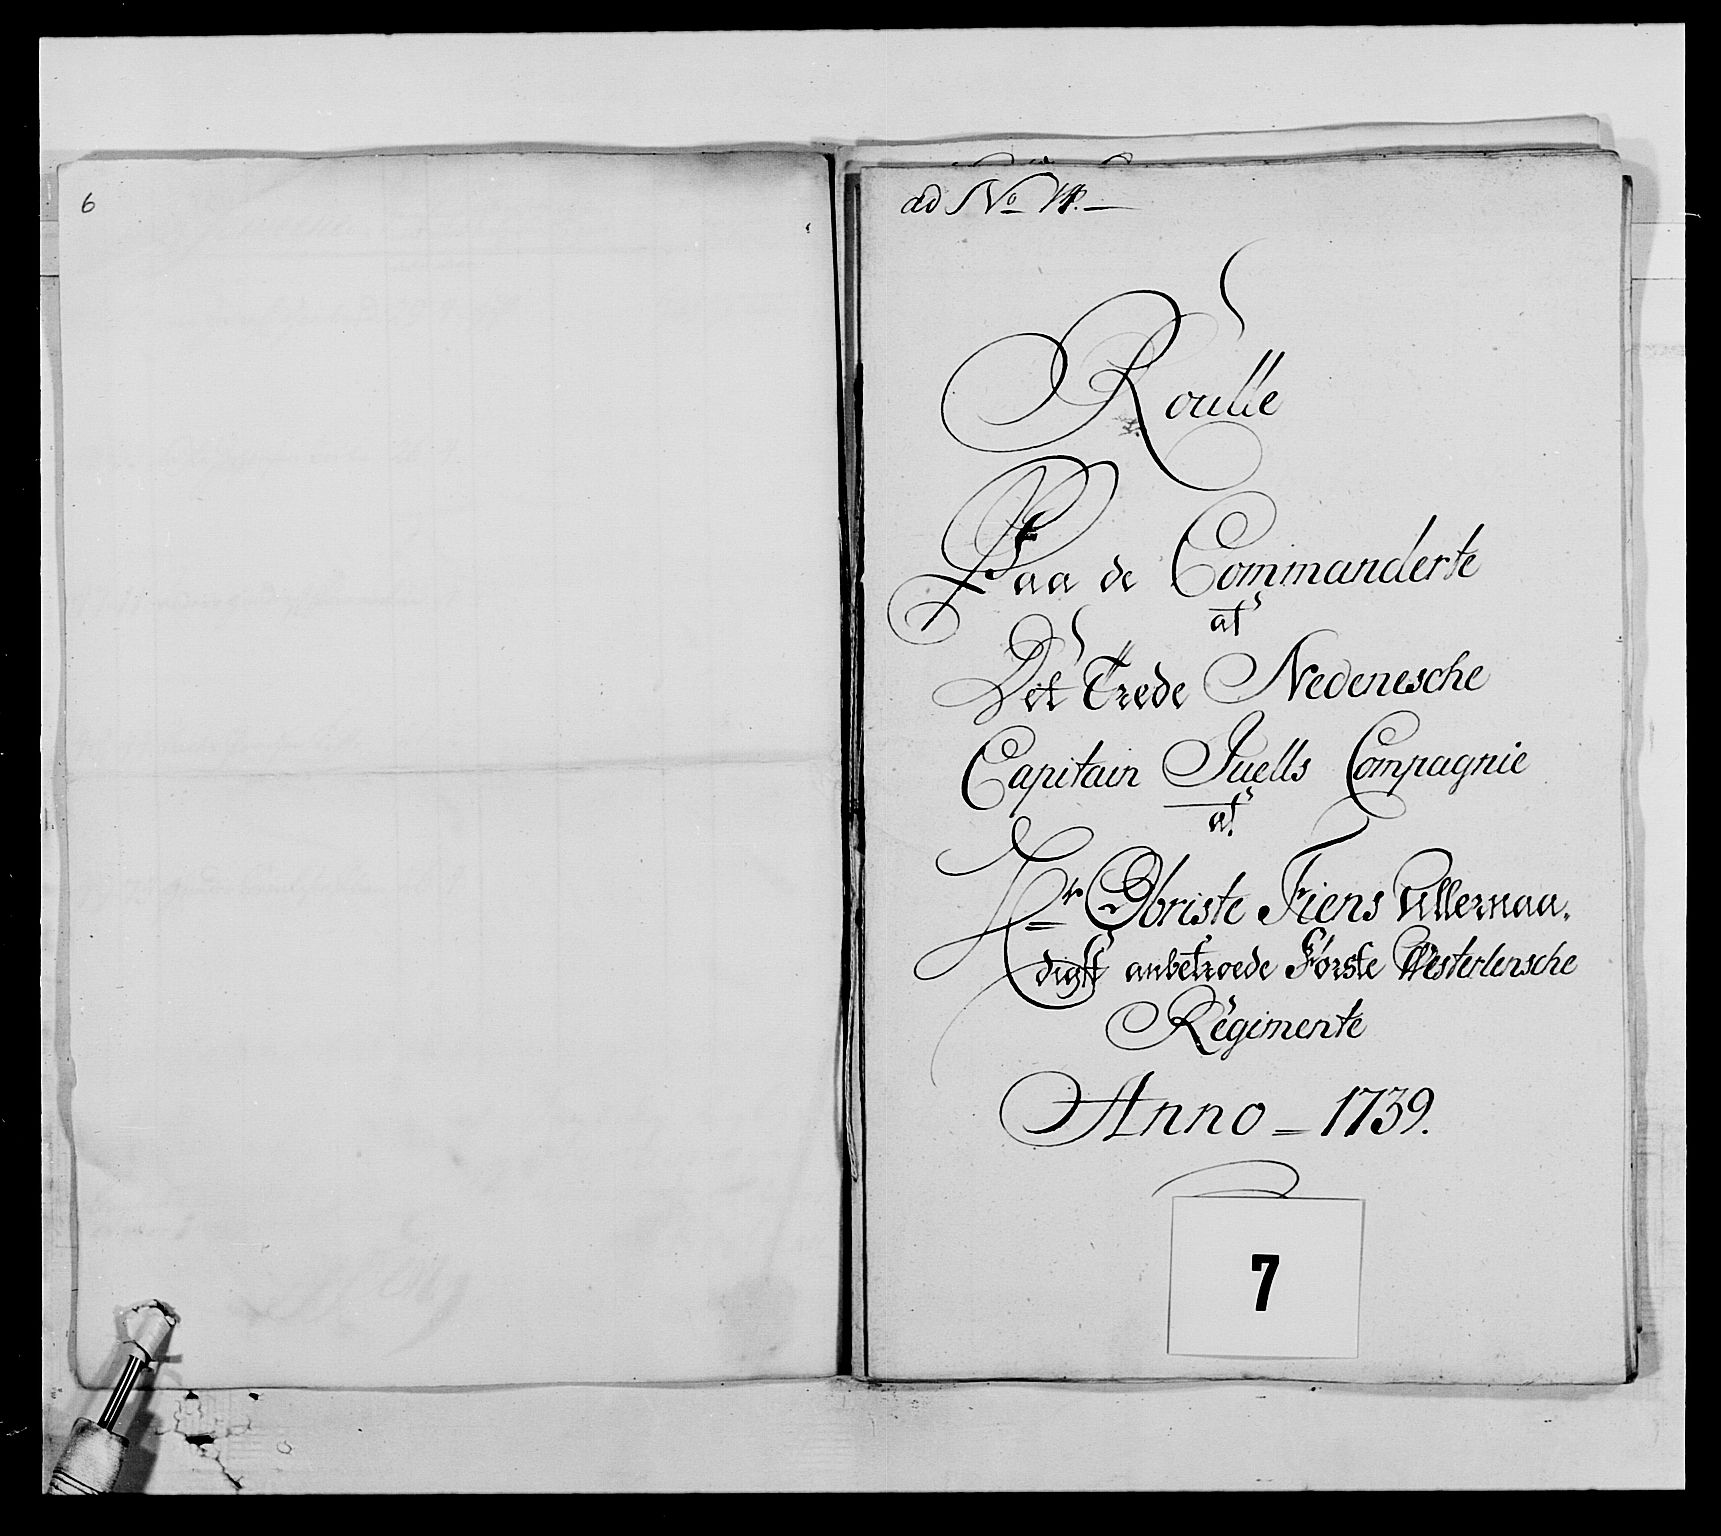 6
ad No
Roulle
Paa de Commanderte
af
Det Trede Nedenesche
Capitain Juells Compagnie
af
Hr Obriste Fiens Allernaa,
digst anbetroede Første Westerlensche
Regimente
Anno = 1739.
7